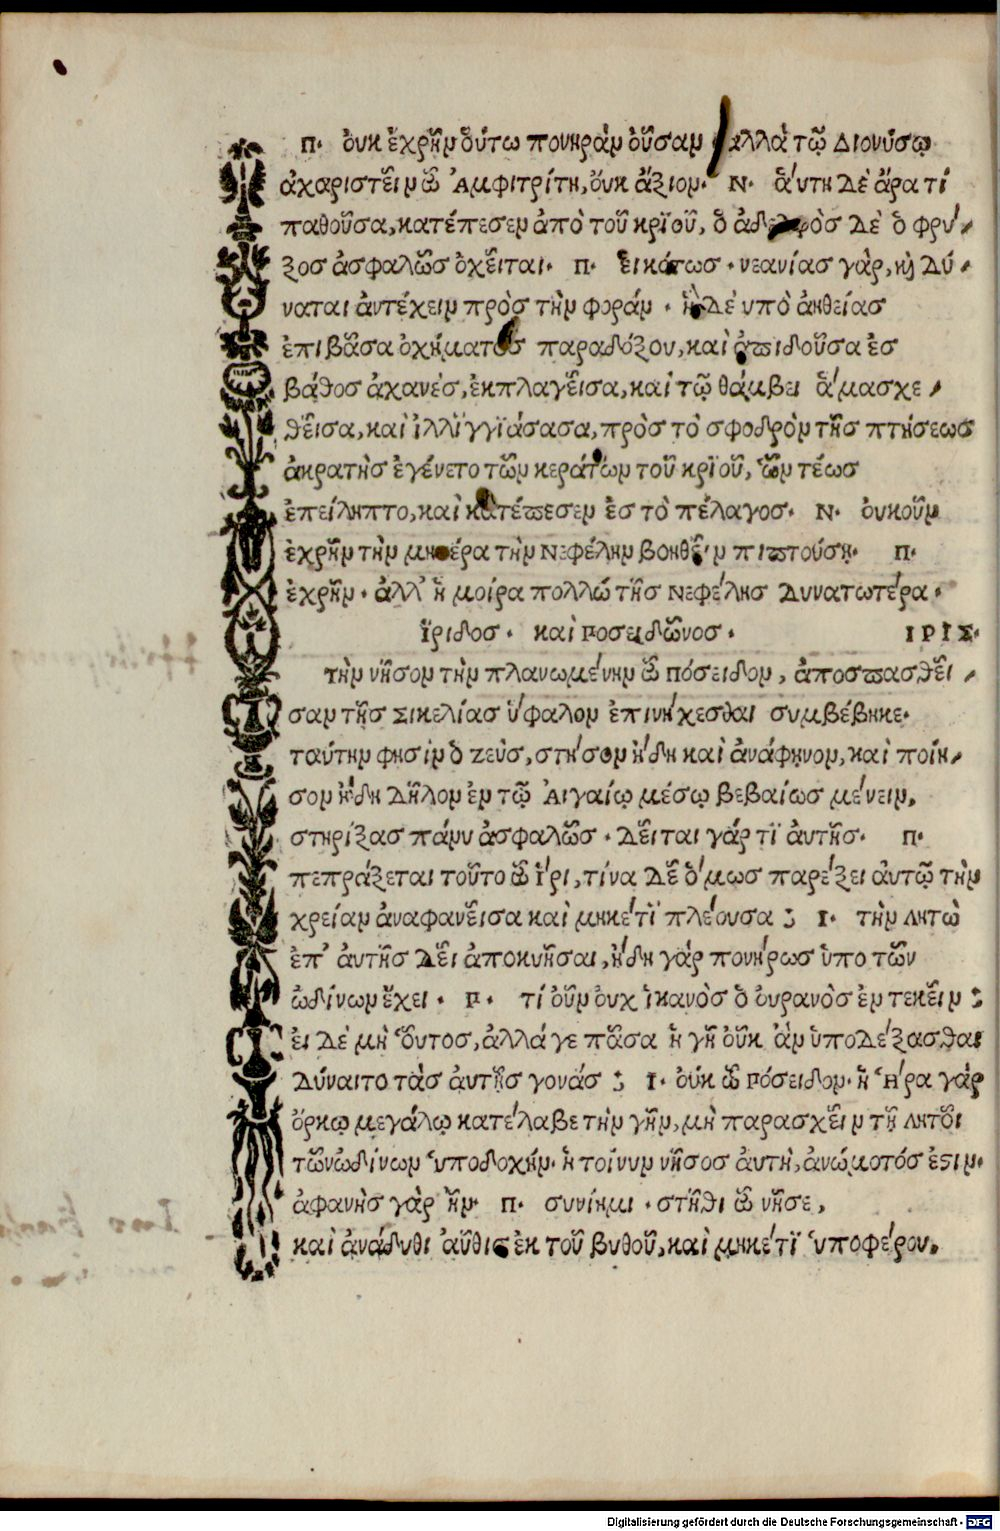 Π· ὀυκ ἐχρῆν ὅυτω πονηρὰν ὀῦσαν ἀλλὰ τῷ Διονύσῳ
ἀχαριστεῖν ὦ Ἀμφιτρίτη, ὀυκ ἄξιον· Ν· ἅυτη δὲ ἄρα τί
παθοῦσα, κατέπεσεν ἀπὸ τοῦ κρϊοῦ, ὁ ἀδελφὸς δὲ ὁ φρύ-
ξος ἀσφαλῶς ὀχεῖται· Π· ἐικότως· νεανίας γὰρ, κỳ δύ-
ναται ἀντέχειν πρὸς τὴν φοράν· ἡ δὲ υπὸ ἀηθείας
ἐπιβᾶσα ὀχήματος παραδόξου, καὶ ἀπιδοῦσα ἐς
βάθος ἀχανές, ἐκπλαγεῖσα, καὶ τῷ θάμβει ἅμα σχε-
θεῖσα, καὶ ἰλλϊγγϊάσασα, πρὸς τὸ σφοδρὸν τῆς πτήσεως
ἀκρατὴς ἐγένετο τῶν κεράτων τοῦ κρϊοῦ, ὧν τέως
ἐπείληπτο, καὶ κατέπεσεν ἐς τὸ πέλαγος· Ν· ὀυκοῦν
ἐχρῆν τὴν μητέρα τὴν Νεφέλην βοηθεῖν πιπτούσῃ· Π·
ἐχρῆν· ἀλλ' ἡ μοίρα πολλώ τῆς Νεφέλης δυνατωτέρα·
ἴριδος· καὶ Ποσειδῶνος· ΙΡΙΣ·
τὴν νῆσον τὴν πλανωμένην ὦ Πόσειδον, ἀποσπασθεῖ-
σαν τῆς Σικελίας ὕφαλον ἐπινήχεσθαι συμβέβηκε·
ταύτην φησὶν ὁ Ζεὺς, στῆσον ἤδη καὶ ἀνάφηνον, καὶ ποίη-
σον ἤδη Δῆλον ἐν τῷ Ἀιγαίῳ μέσῳ βεβαίως μένειν,
στηρίξας πάνυ ἀσφαλῶς· δεῖται γάρ τϊ ἀυτῆς· Π·
πεπράξεται τοῦτο ὦ ἶρι, τίνα δὲ ὅμως παρέξει ἀυτῷ τὴν
χρείαν ἀναφανεῖσα καὶ μηκέτϊ πλέουσα ; Ι· τὴν Λητὼ
ἐπ' ἀυτῆς δεῖ ἀποκυῆσαι, ἤδη γάρ πονήρως ὑπο τῶν
ὠδίνων ἔχει· Π· τί ὀῦν ὀυχ ἱκανὸς ὁ ὀυρανὸς ἐν τεκεῖν ;
ἐι δὲ μὴ ὅυτος, ἀλλά γε πᾶσα ἡ γῆ ὀῦκ ἂν ὑποδέξασθαι
δύναιτο τὰς ἀυτῆς γονάς ; Ι· ὀύκ ὦ Πόσειδον· ἡ Ἥρα γὰρ
ὅρκῳ μεγάλῳ κατέλαβε τὴν γῆν, μὴ παρασχεῖν τῇ Λητοῖ
τῶν ὠδίνων ὑποδοχήν· ἡ τοίνυν νῆσος ἀυτὴ, ἀνώμοτός ἐστιν·
ἀφανὴς γὰρ ἦν· Π· συνίημι· στῆθι ὦ νῆσε,
καὶ ἀνάδυθι ἀῦθις ἐκ τοῦ βυθοῦ, καὶ μηκέτϊ ὑποφέρου,
Digitalisierung gefördert durch die Deutsche Forschungsgemeinschaft - DFG